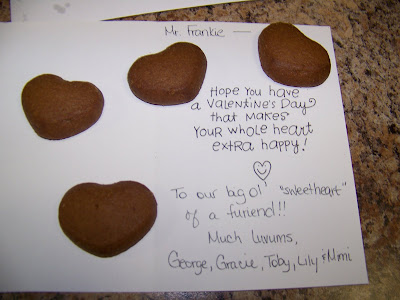 Mr. Frankie —
Hope you have
a Valentine's Day
that makes
your whole heart
extra happy!
To our big ol' "sweetheart"
of a furiend!!
Much luvums,
George, Gracie, Toby, Lily & Mimi